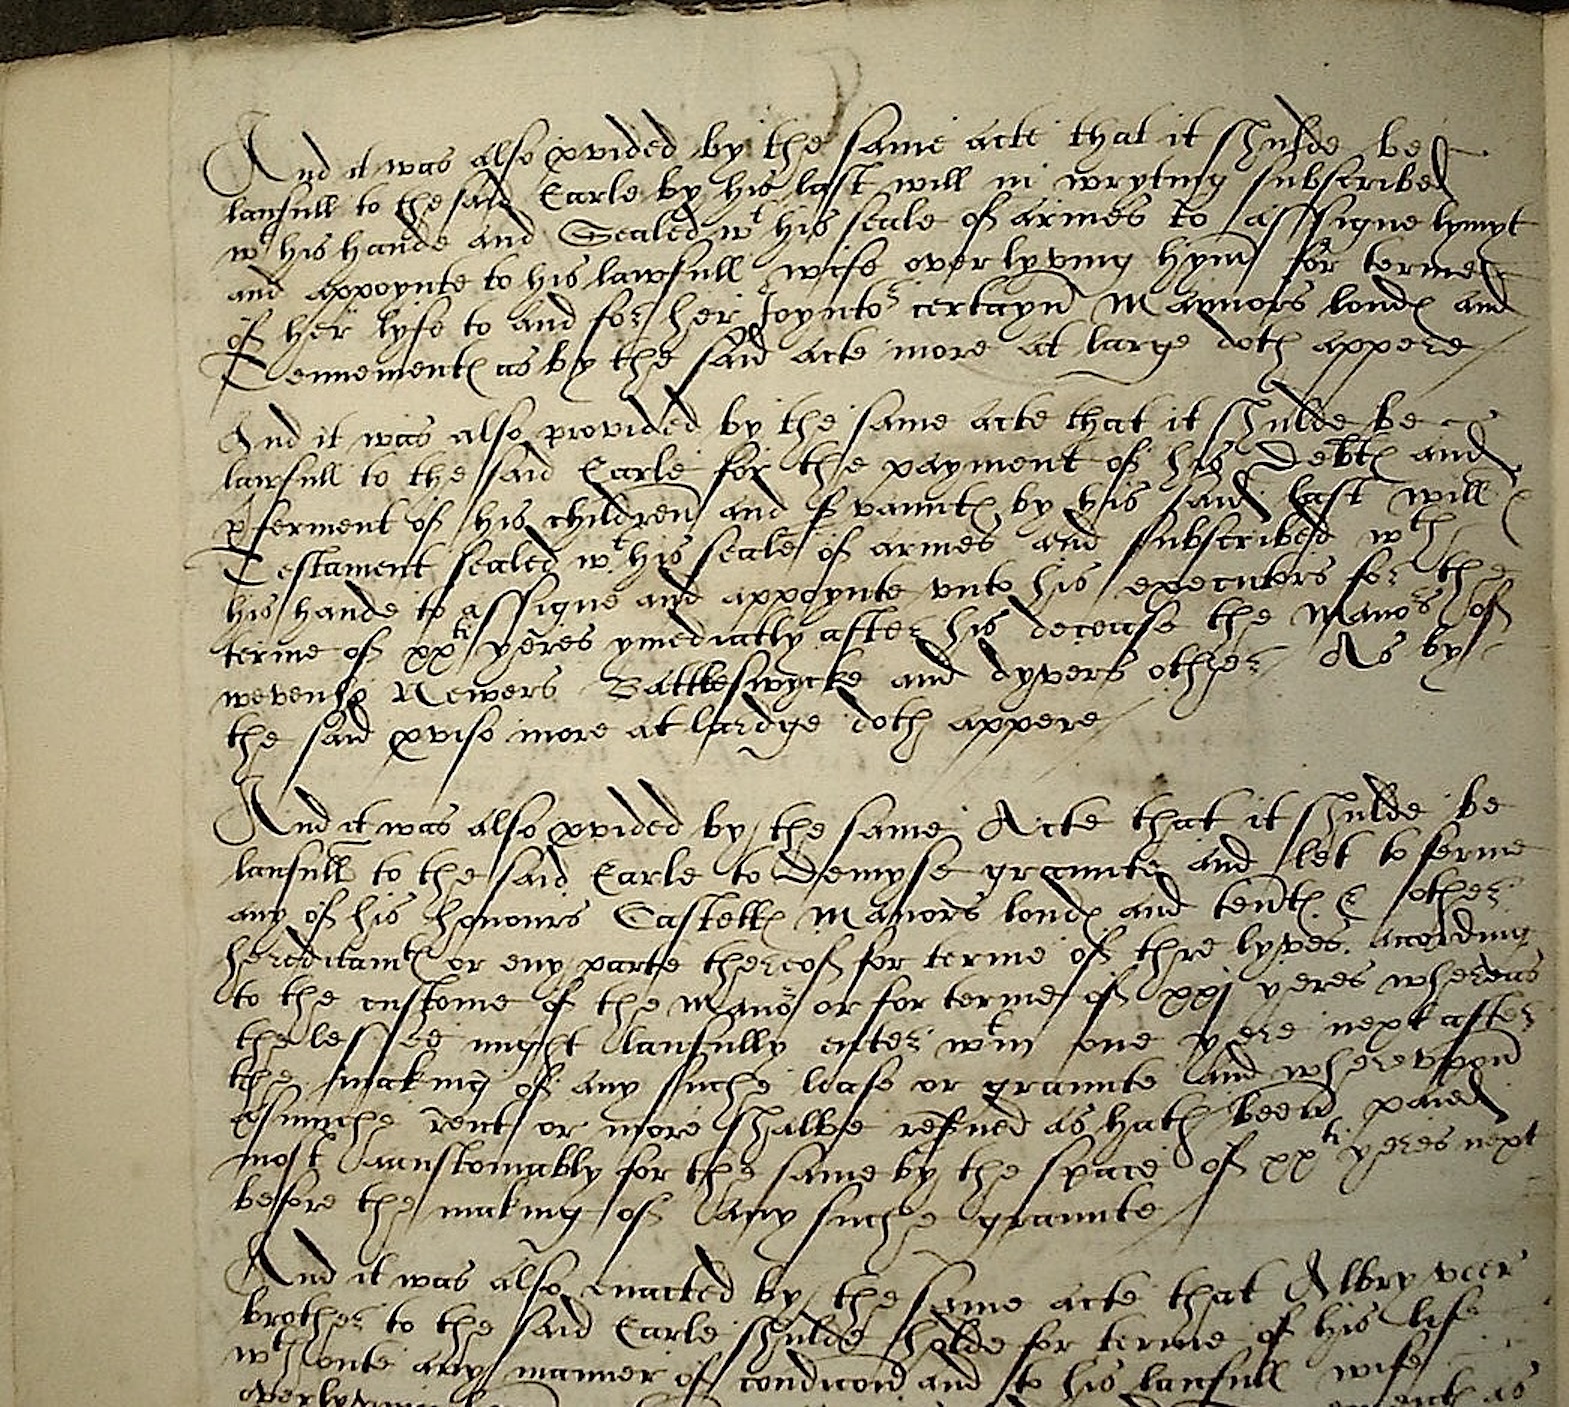 And it was also pvided by the same acte that it shulde be
laufull to the said Earle by his last will in wryting subscribed
wt his hande and Sealed wt his seale of armes to assigne lymyt
and appoynte to his lawfull wife overlyving hym for terme
of her lyfe to and for her Joyntor certayn Mannors londes and
Tennementes as by the said acte more at large doth appere
And it was also provided by the same acte that it shulde be
lawfull to the said Earle for the payment of his Debtes and
pferment of his children and svauntes by his said last will &
Testament sealed wt his seale of armes and subscribed wth
his hande to assigne and appoynte vnto his executors for the
terme of xxti yeres ymediatly after his decease the Manors of
wevenho Rewers Battleswycke and dyvers other As by
the said pviso more at lardge doth appere
And it was also pvided by the same Acte that it shulde be
laufull to the said Earle to Demyse graunte and let to ferme
any of his honours Castelles Manors londes and tentes & other
hereditamtes or eny parte thereof for terme of thre lyves according
to the custome of the Manor or for terme of xxj yeres whereas
the lessee might laufully enter wtin one yere next after
the making of any suche lease or graunte and wherevpon
asmuche rent or more shalbe resrued as hath been paied
most accustomably for the same by the space of xxti yeres next
before the making of any suche graunte
And it was also enacted by the same acte that Albry veer
brother to the said Earle shulde holde for terme of his life
wthoute any manner of condicion and to his laufull wife
overlyving as